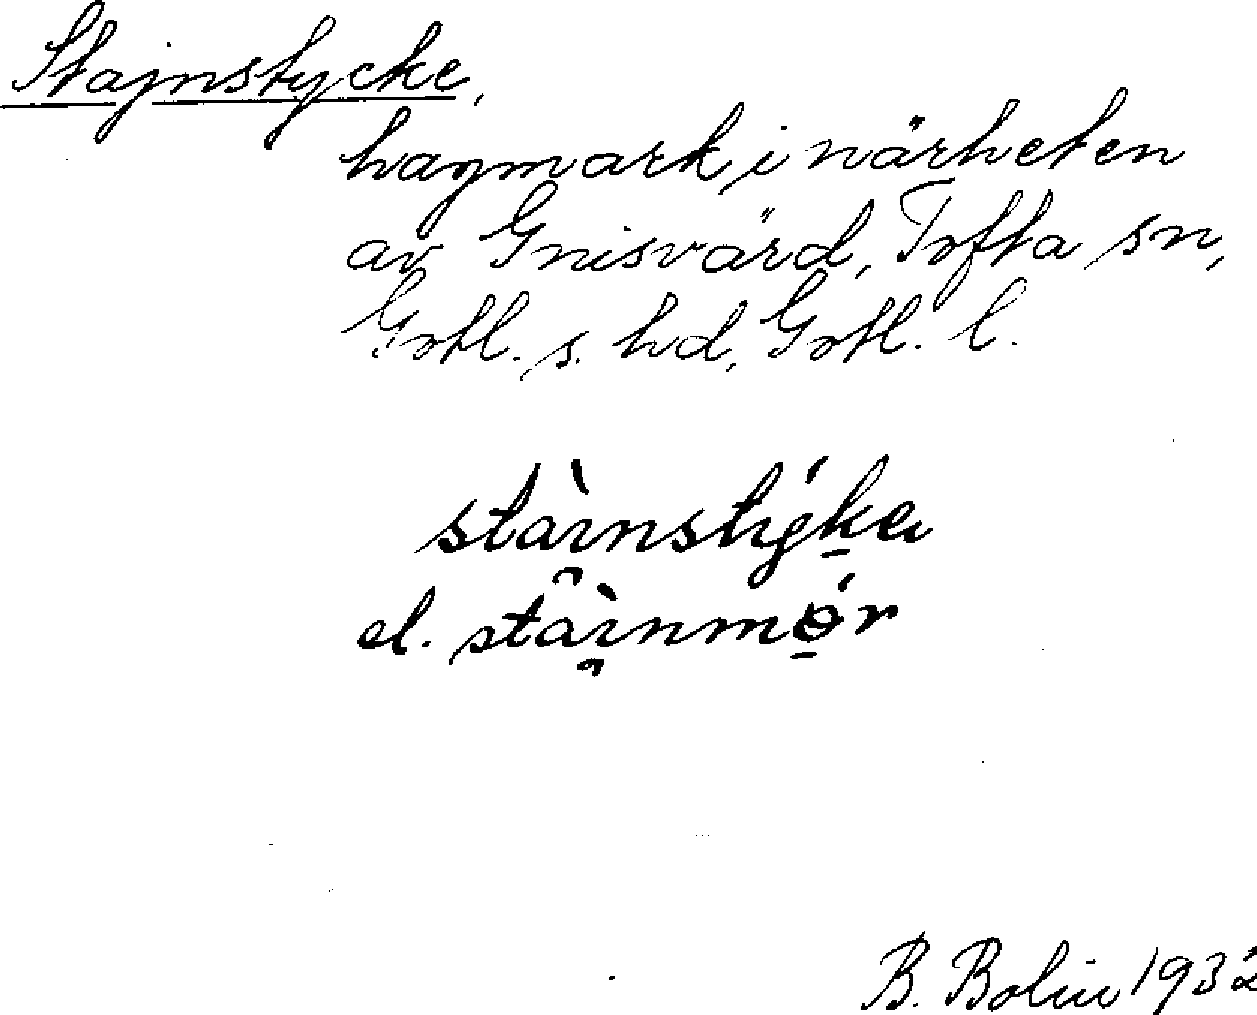 Stajnstycke,
hagmark i närheten
av Gnisvärd, Tofta sn,
Gotl. s. hd, Gotl. l.
stàinstýke
el. stàinmǿr
B. Bolin 1932